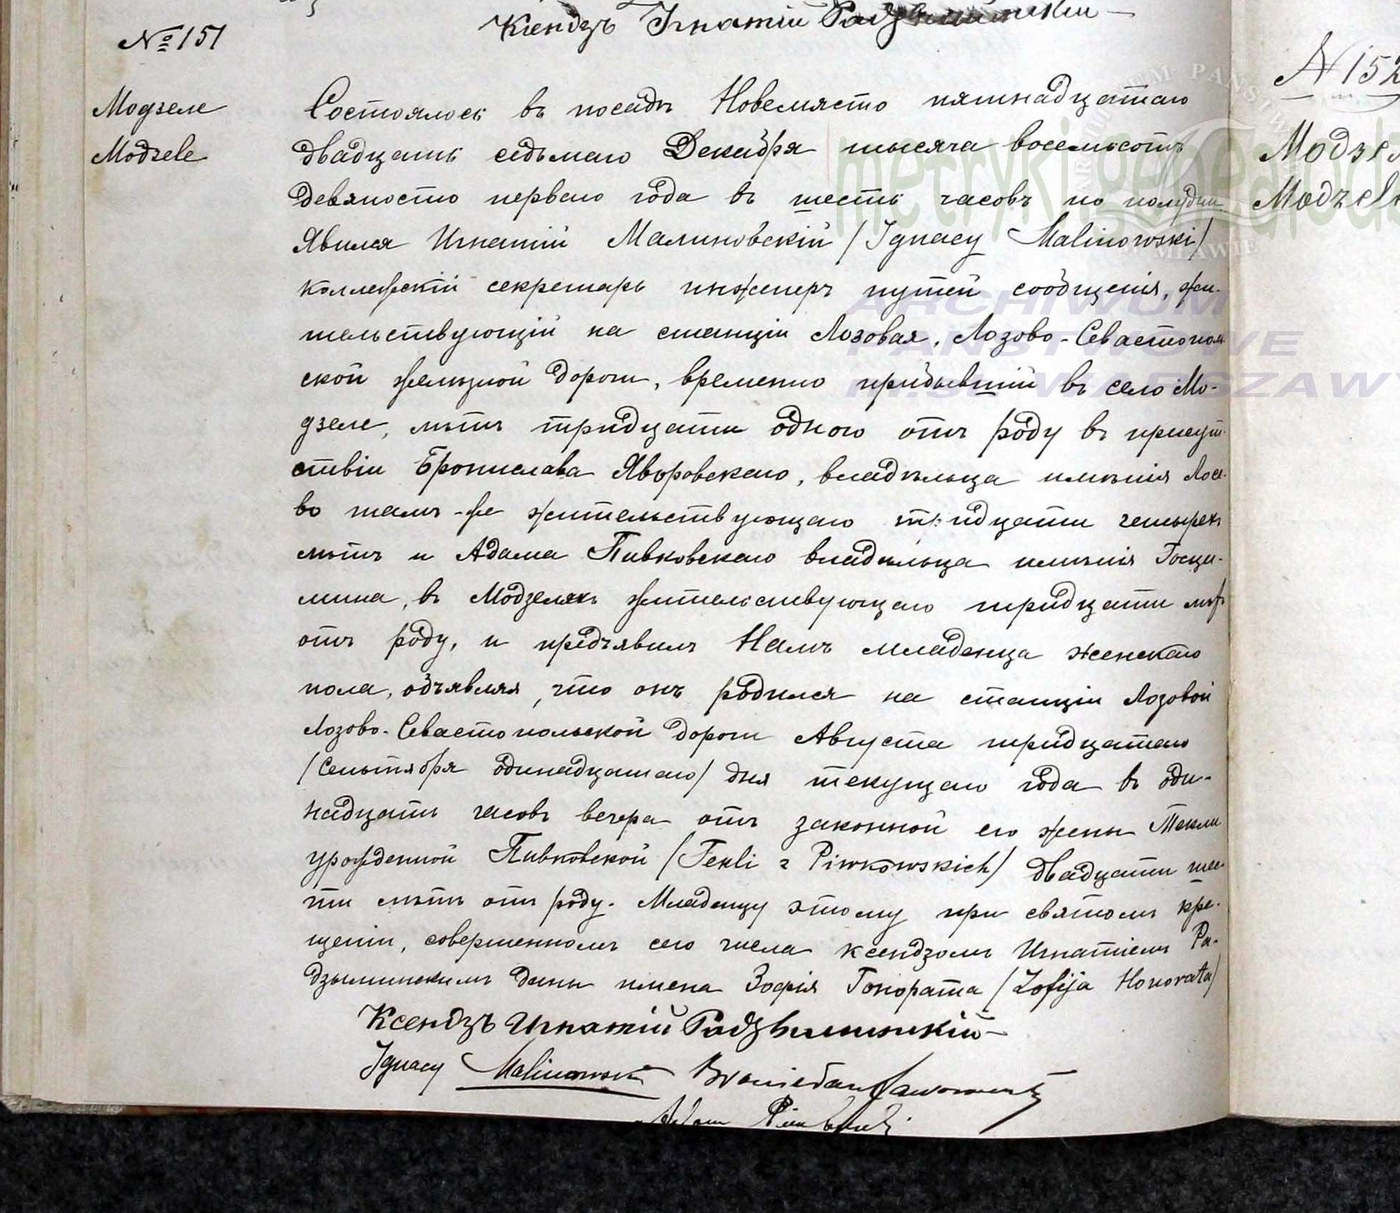 Ксендзъ Игнатій
№ 151
Модзеле
Modzele
Состоялось въ посадѣ Новемясто пятнадцатаго
двадцать седьмаго Декабря тысяча восемьсотъ
девяносто перваго года въ шесть часовъ по полудни
Явился Игнатій Малиновскій /Ignacy Malinowski/
коллежскій секретарь инженеръ путей сообщенія, жи-
тельствующій на станціи Лозовая, Лозово-Севастополь
ской желѣзной дороги, временно прибывшій въ село Мо-
дзеле, лѣтъ тридцати одного отъ роду въ присут-
ствіи Бронислава Яворовскаго, владѣльца имѣнія
во тамъ-же жительствующаго тридцати четырехъ
лѣтъ и Адама Пивковскаго владѣльца имѣнія Госци-
мина, въ Модзеляхъ жительствующаго тридцати лѣтъ
отъ роду, и предъявилъ Намъ младенца женскаго
пола, объявляя, что онъ родился на станціи Лозовой
Лозово-Севастопольской дороги Августа тридцатаго
/Сентября одинадцатаго/ дня текущаго года въ оди-
надцать часовъ вечера отъ законной его жены Текли
урожденной Пивковской /Tekli z Piwkowskich/ двадцати шес-
ти лѣтъ отъ роду. Младенцу этому при святомъ кре-
щеніи, совершенномъ сего числа ксендзомъ Игнатіемъ Ра-
дзыминскимъ даны имена Зофія Гонората /Zofija Honorata/
Ксендзъ Игнатій Радзыминскій
Ignacy Malinowski Bronisław Jaworowski
Adam Piwkowski
№ 152
metryki.genealod
ARCHIWUM
PAŃSTWOWE
M.ST. WARSZAWY